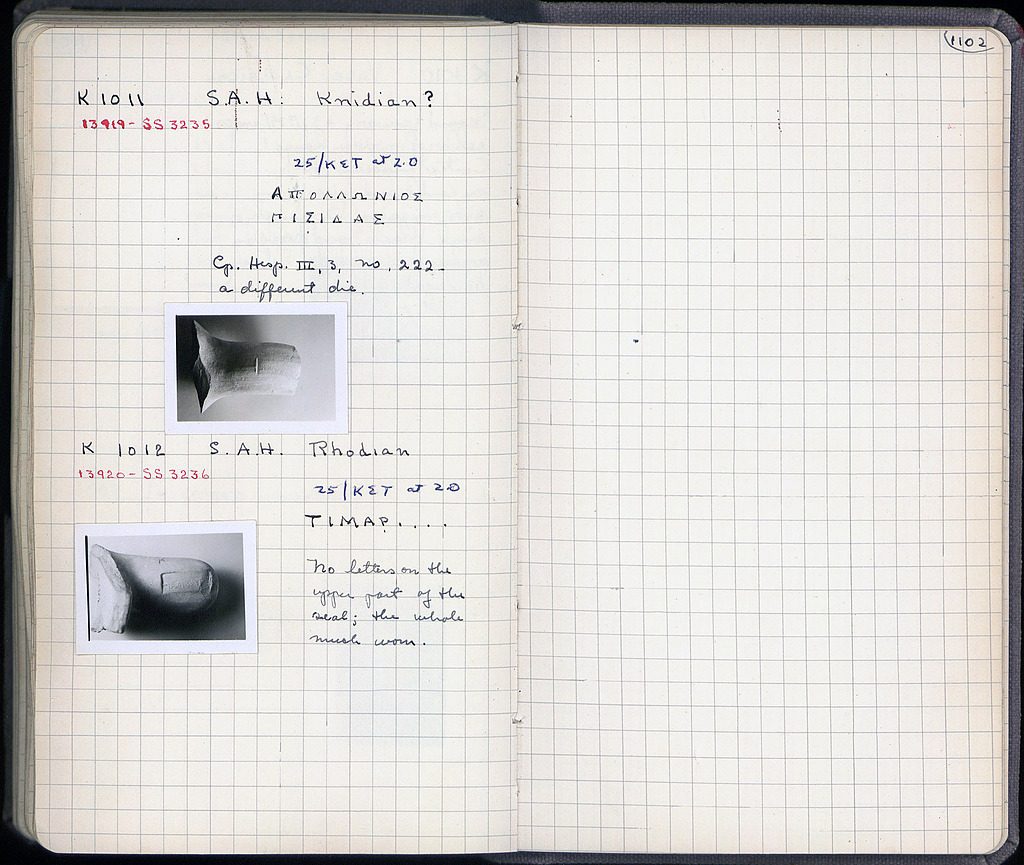 1102
K 1011 S.A.H: Knidian?
13919 - SS 3235
25/ΚΣΤ at 2.0
ΑΠΟΛΛΩΝΙΟΣ
ΠΙΣΙΔΑΣ
Cp. Hesp. III, 3, no. 222 -
a different die.
K 1012 S.A.H. Rhodian
13920 - SS 3236
25/ΚΣΤ at 2.0
ΤΙΜΑΡ....
No letters on the
upper part of the
seal; the whole
much worn.